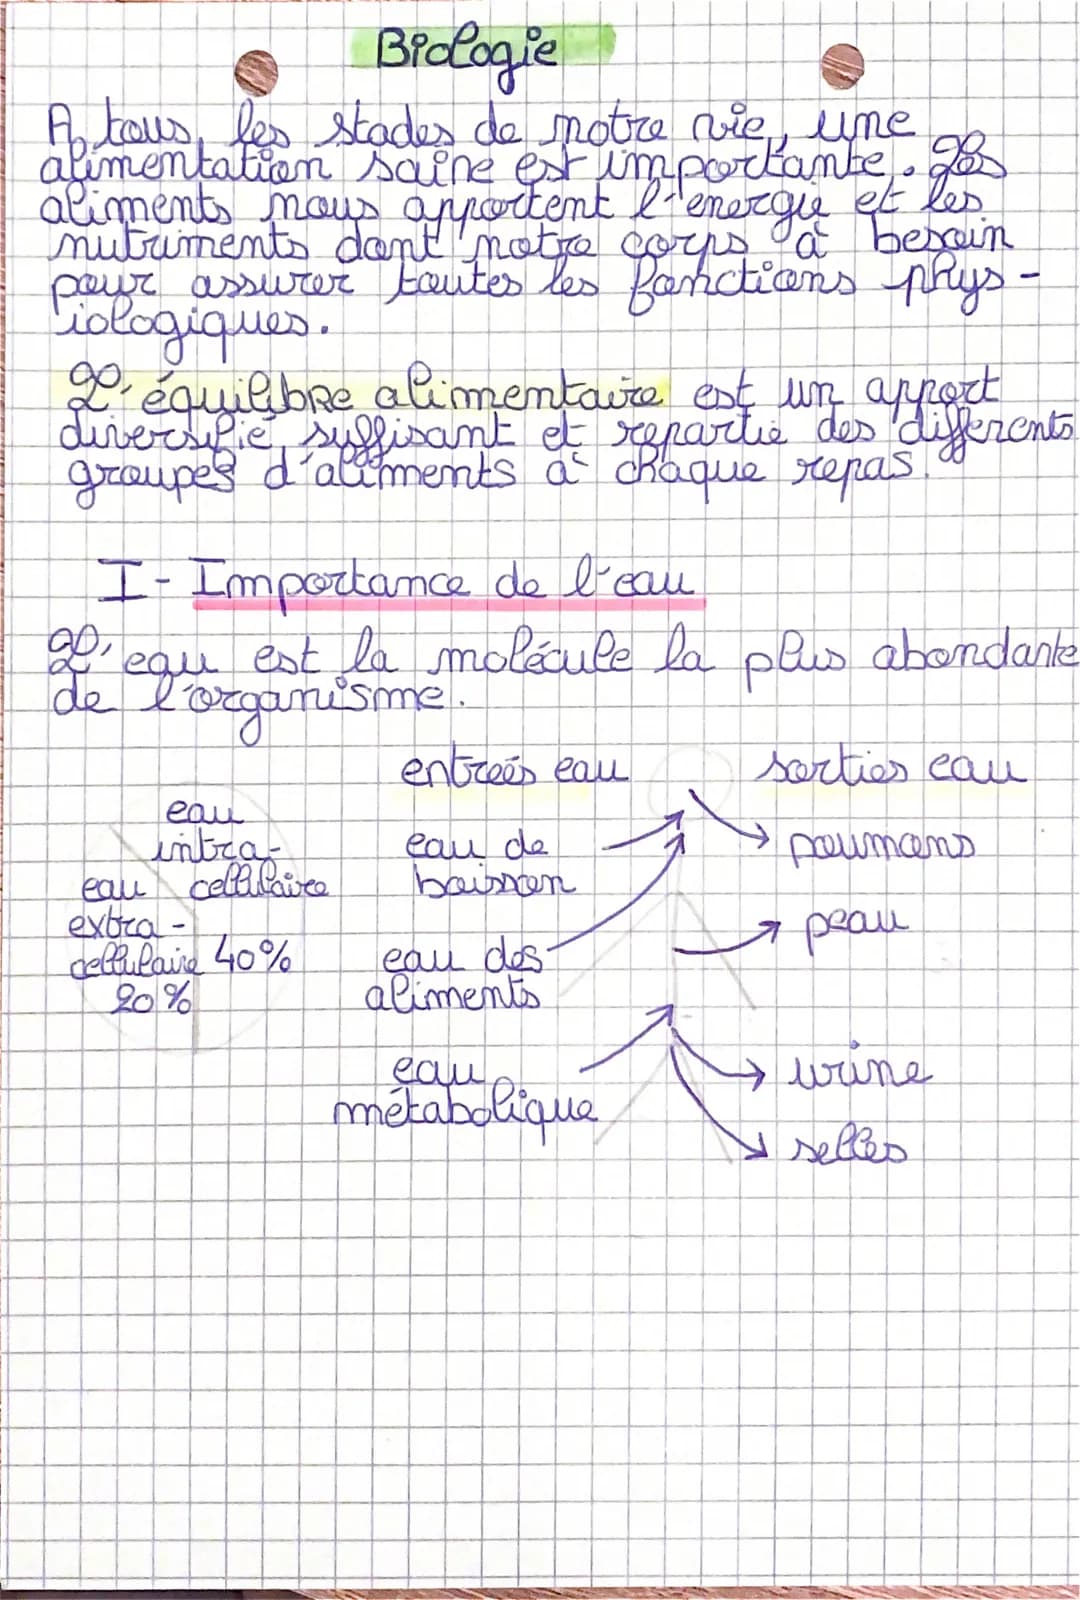 Biologie
A tous les stades de notre vie, une
alimentation saine est importante. Les
aliments nous apportent l'energie et les
nutriments dont notre corps à besoin
pour assurer toutes les fonctions phys-
iologiques.
L'équilibre alimentaire est un apport
diversifié, suffisant et repartie des différents
groupes d'aliments à chaque repas.
I- Importance de l'eau
L'eau est la molécule la plus abondante
de l'organisme.
entreés eau
sorties eau
eau
intra-
cellulaire
40%
eau
extra-
cellulaire
20%
eau de
boisson
eau des
aliments
eau
métabolique
poumons
peau
urine
selles